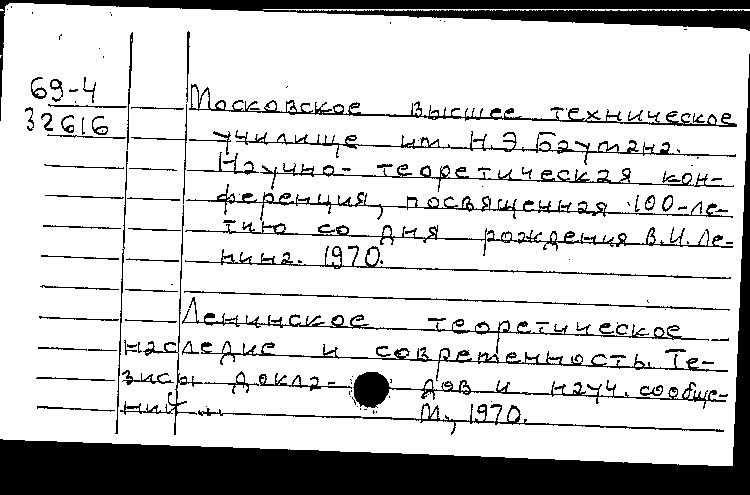 69-4
32616
Московское высшее техническое
училище им. Н.Э.Баумана.
Научно-теоретическая кон-
ференция, посвященная 100-ле-
тию со дня рождения В.И.Ле-
нина. 1970.
Ленинское теоретическое
наследие и современность. Те-
зисы докла- дов и науч. сообще-
ний... М., 1970.